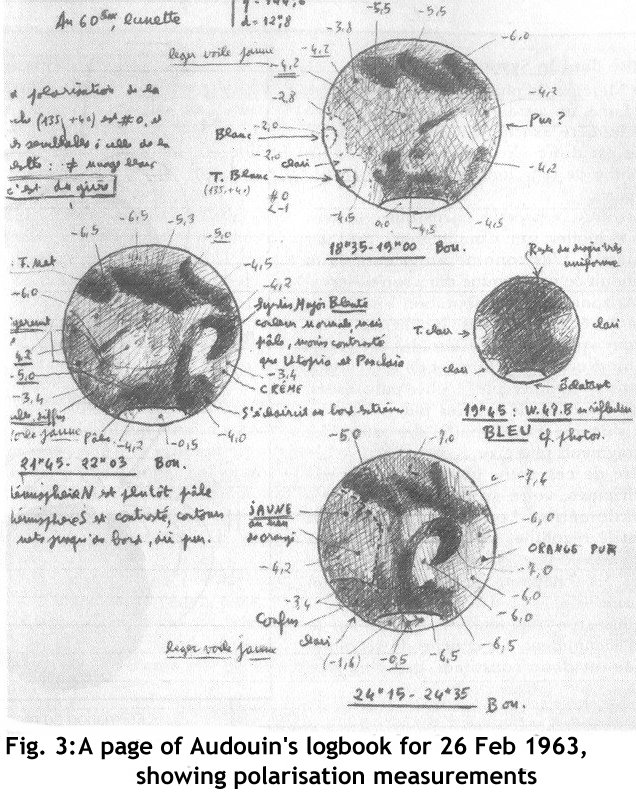 Au 60 cm, lunette
d = 12",8
-5,5
-5,5
-3,8
-6,0
leger voile jaune
-4,2
-4,2
-2,8
-4,2
polarisation de la
(135, +40) est # 0, et
semblables à celle de la
nuage
c'est du givre
Blanc
-2,0
Pur ?
-2,0
clair
T. Blanc
(135, +40)
# 0
<-1
-4,2
-4,5
0,0
-4,5
-4,5
18H35-19H00 Bon.
-6,5
-6,5
-5,3
-5,0
T. net
-4,5
-6,0
-4,2
Syrtis Major Bleuté
couleur normale, mais
pâle, moins contrasté
que Utopia et
-3,4
CRÈME
4,2
-5,0
-3,4
diffus
voile jaune
Pâle
-4,2
-0,5
-4,0
S'éclaircit au bord extrême
21H45-22H03 Bon.
très
uniforme
T. clair
clair
clair
Éclatant
19H45 : W.47.B
BLEU cf. photos.
hémisphère N est plutôt pâle
hémisphère S est contrasté, contours
nets jusqu'au bord, air pur.
-5,0
-7,0
-7,4
-6,0
JAUNE
au lieu
de orangé
ORANGE PUR
-7,0
-4,2
-6,0
-6,0
-3,4
Confus
clair
leger voile jaune
(-1,6)
-0,5
-6,5
-6,5
24H15-24H35 Bon.
Fig. 3:A page of Audouin's logbook for 26 Feb 1963,
showing polarisation measurements